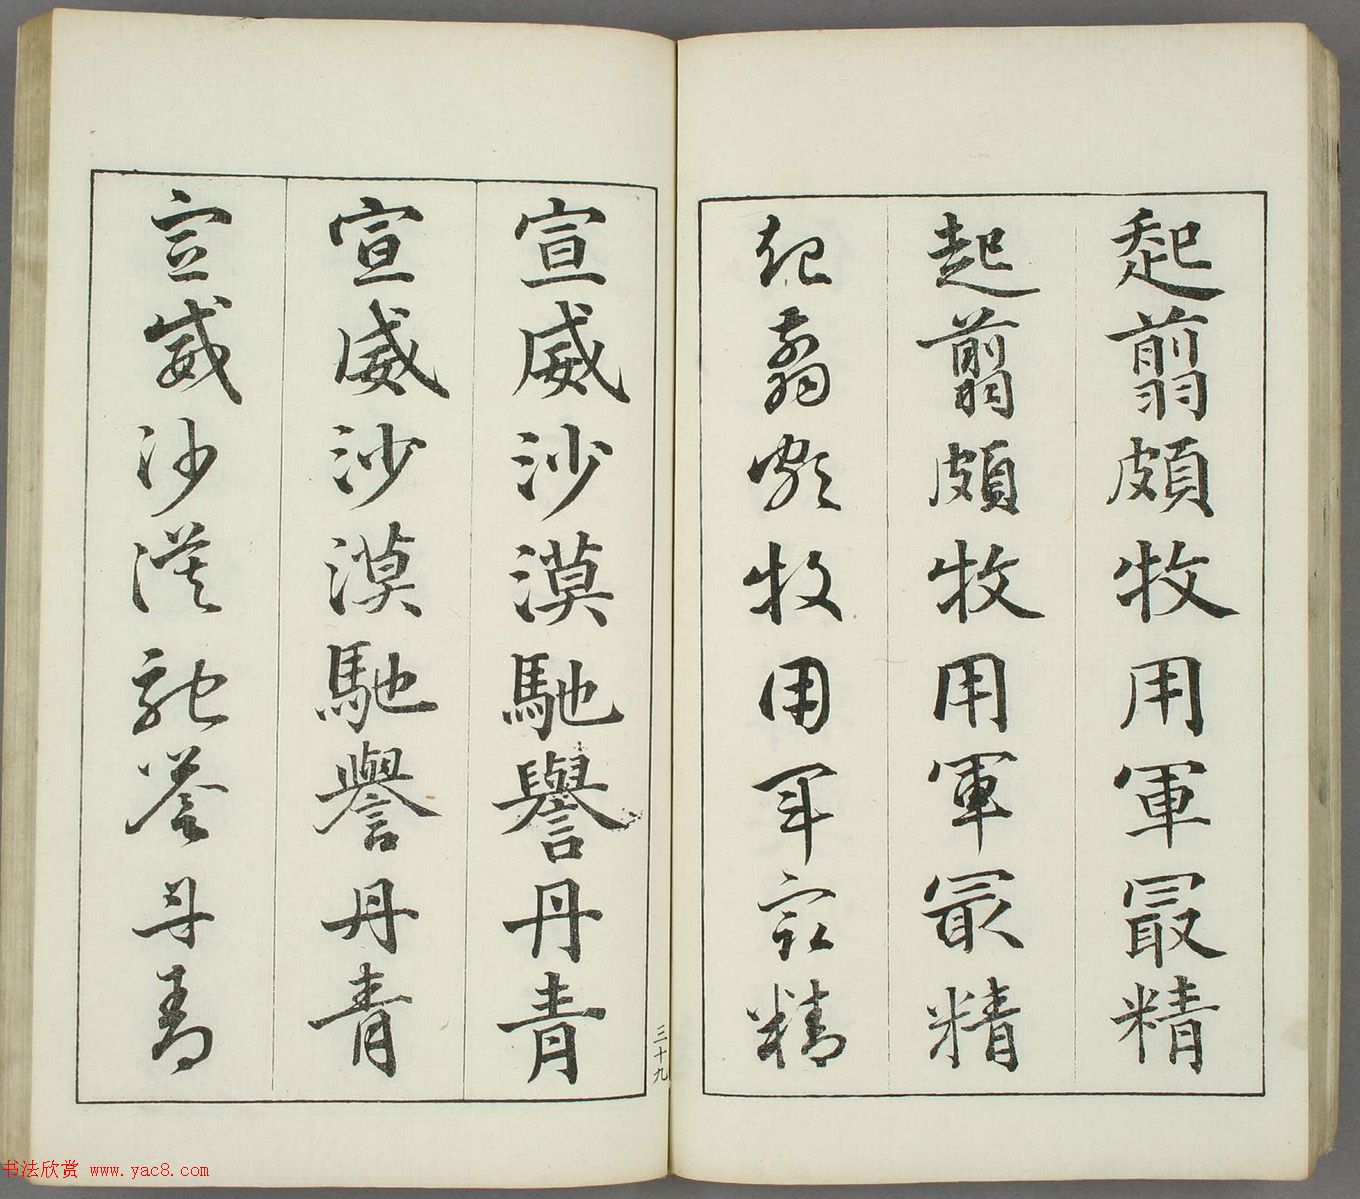 起翦頗牧用軍最精
起翦頗牧用軍最精
起翦頗牧用軍最精
宣威沙漠馳譽丹青
宣威沙漠馳譽丹青
宣威沙漠馳譽丹青
三十九
书法欣赏 www.yac8.com